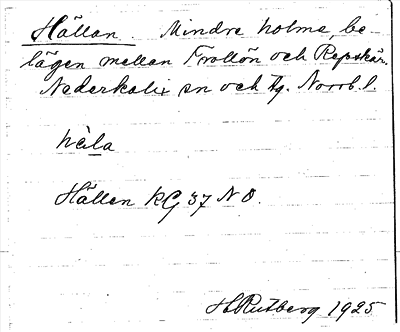 Hällan. Mindre holme, be-
lägen mellan Trollön och Repskär.
Nederkalix sn och tg. Norrb. l.
hèla
Hällen KG 37 NO.
H Rutberg 1925